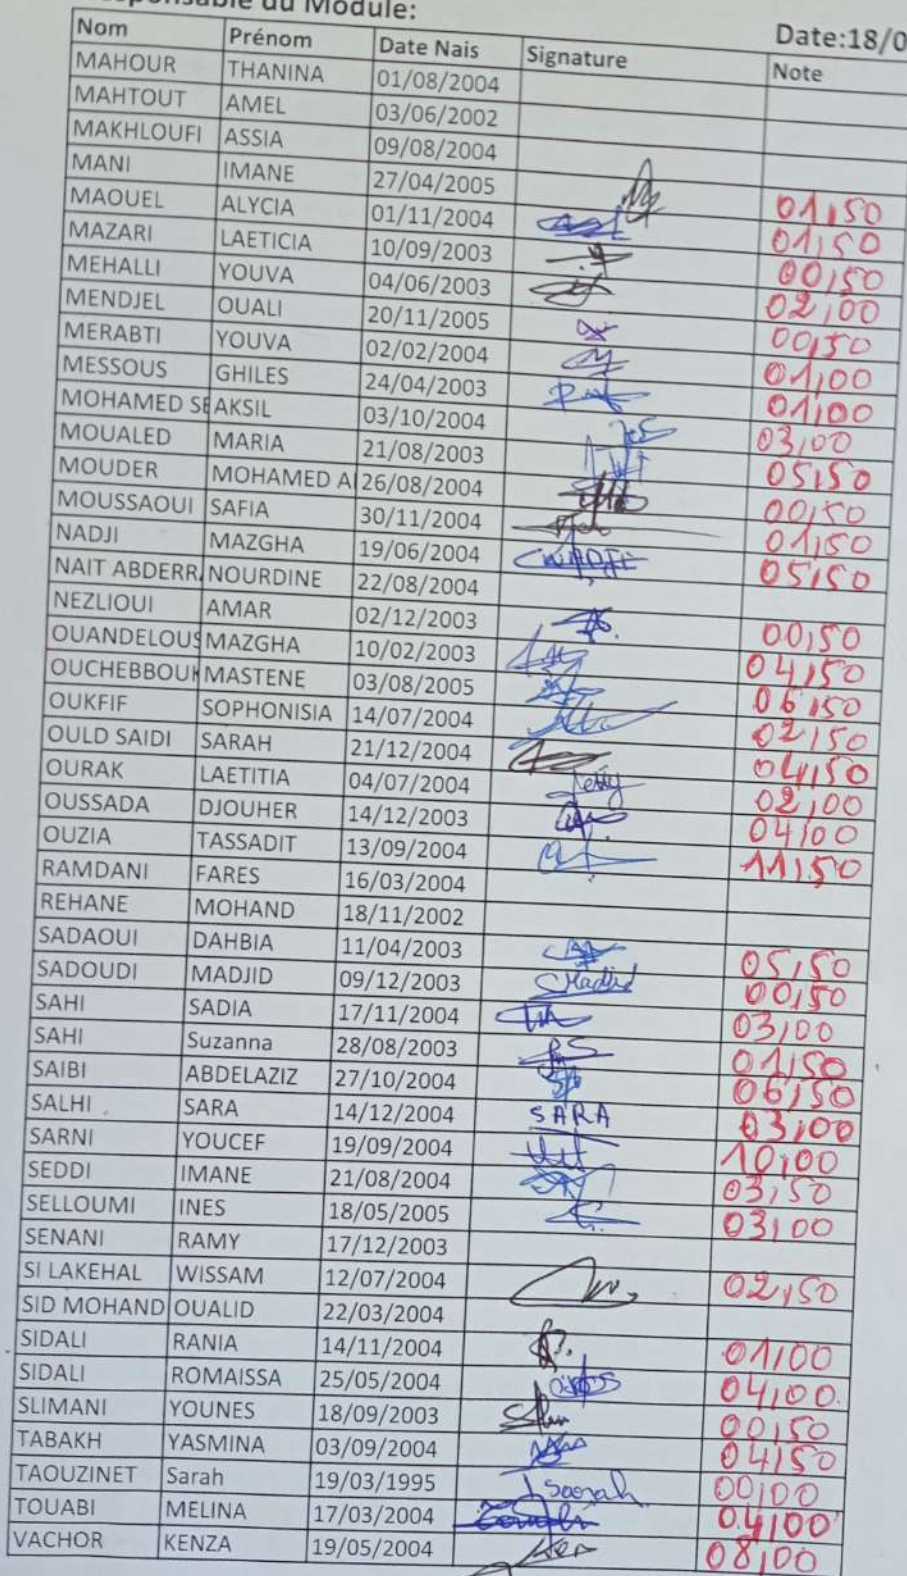 ponsable du Module:
Date:18/0
Nom Prénom Date Nais Signature Note
MAHOUR THANINA 01/08/2004
MAHTOUT AMEL 03/06/2002
MAKHLOUFI ASSIA 09/08/2004
MANI IMANE 27/04/2005 01,50
MAOUEL ALYCIA 01/11/2004 01,50
MAZARI LAETICIA 10/09/2003 00,50
MEHALLI YOUVA 04/06/2003 02,00
MENDJEL OUALI 20/11/2005 00,50
MERABTI YOUVA 02/02/2004 01,00
MESSOUS GHILES 24/04/2003 01,00
MOHAMED SE AKSIL 03/10/2004 03,00
MOUALED MARIA 21/08/2003 05,50
MOUDER MOHAMED A 26/08/2004 00,50
MOUSSAOUI SAFIA 30/11/2004 01,50
NADJI MAZGHA 19/06/2004 05,50
NAIT ABDERR NOURDINE 22/08/2004
NEZLIOUI AMAR 02/12/2003 00,50
OUANDELOUS MAZGHA 10/02/2003 04,50
OUCHEBBOUK MASTENE 03/08/2005 06,50
OUKFIF SOPHONISIA 14/07/2004 02,50
OULD SAIDI SARAH 21/12/2004 04,50
OURAK LAETITIA 04/07/2004 02,00
OUSSADA DJOUHER 14/12/2003 04,00
OUZIA TASSADIT 13/09/2004 11,50
RAMDANI FARES 16/03/2004
REHANE MOHAND 18/11/2002
SADAOUI DAHBIA 11/04/2003 05,50
SADOUDI MADJID 09/12/2003 Madjid 00,50
SAHI SADIA 17/11/2004 03,00
SAHI Suzanna 28/08/2003 01,50
SAIBI ABDELAZIZ 27/10/2004 06,50
SALHI SARA 14/12/2004 SARA 03,00
SARNI YOUCEF 19/09/2004 10,00
SEDDI IMANE 21/08/2004 03,50
SELLOUMI INES 18/05/2005 03,00
SENANI RAMY 17/12/2003
SI LAKEHAL WISSAM 12/07/2004 02,50
SID MOHAND OUALID 22/03/2004
SIDALI RANIA 14/11/2004 01,00
SIDALI ROMAISSA 25/05/2004 04,00
SLIMANI YOUNES 18/09/2003 00,50
TABAKH YASMINA 03/09/2004 04,50
TAOUZINET Sarah 19/03/1995 Sarah 00,00
TOUABI MELINA 17/03/2004 04,00
VACHOR KENZA 19/05/2004 08,00